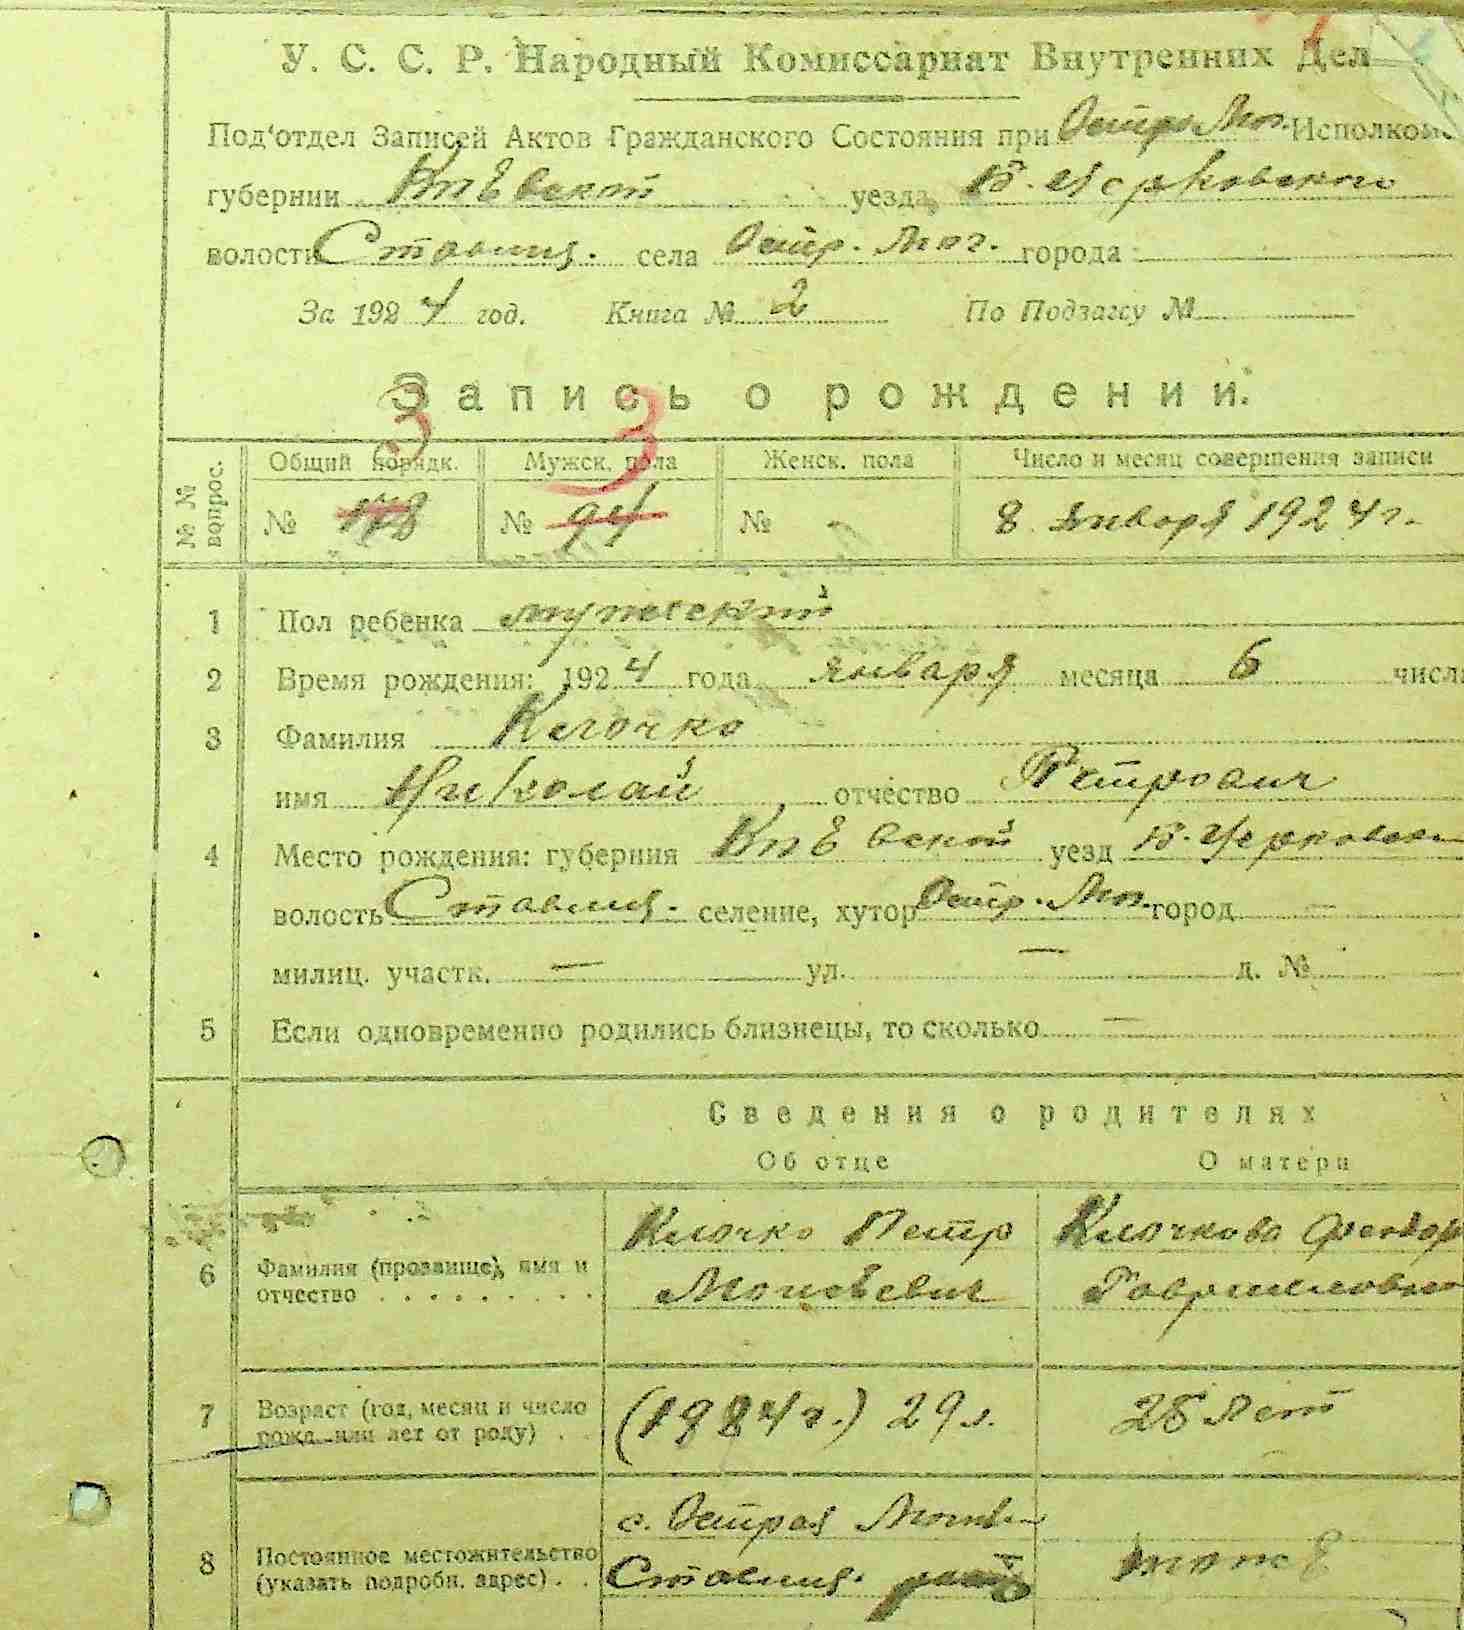 У. С. С. Р. Народный Комиссариат Внутренних Дел
Под'отдел Записей Актов Гражданского Состояния при Остро Мог. Исполком
губернии Киѣвской уезда Б. Церковского
волости Ставищ. села Остр. Мог. города —
За 1924 год. Книга № 2 По Подзагсу № —
Запись о рождении.
№ № вопрос. Общий порядк. Мужск. пола Женск. пола Число и месяц совершения записи
3 3
№ 178 № 94 № - 8 января 1924 г.
1 Пол ребенка мужской
2 Время рождения: 1924 года января месяца 6 числа
3 Фамилия Клочко
имя Николай отчество Петрович
4 Место рождения: губерния Киѣвской уезд Б. Церковск
волость Ставищ. селение, хутор Остр. Мог. город —
милиц. участк. — ул. — д. №
5 Если одновременно родились близнецы, то сколько —
Сведения о родителях
Об отце О матери
6 Фамилия (прозвище), имя и отчество Клочко Петр Клочкова Феодор
Моисѣевич Гавриловна
7 Возраст (год, месяц и число рожд. или лет от роду) (1924 г.) 29 л. 25 лет
8 Постоянное местожительство (указать подробн. адрес) с. Острая Могил
Ставищ. тоже